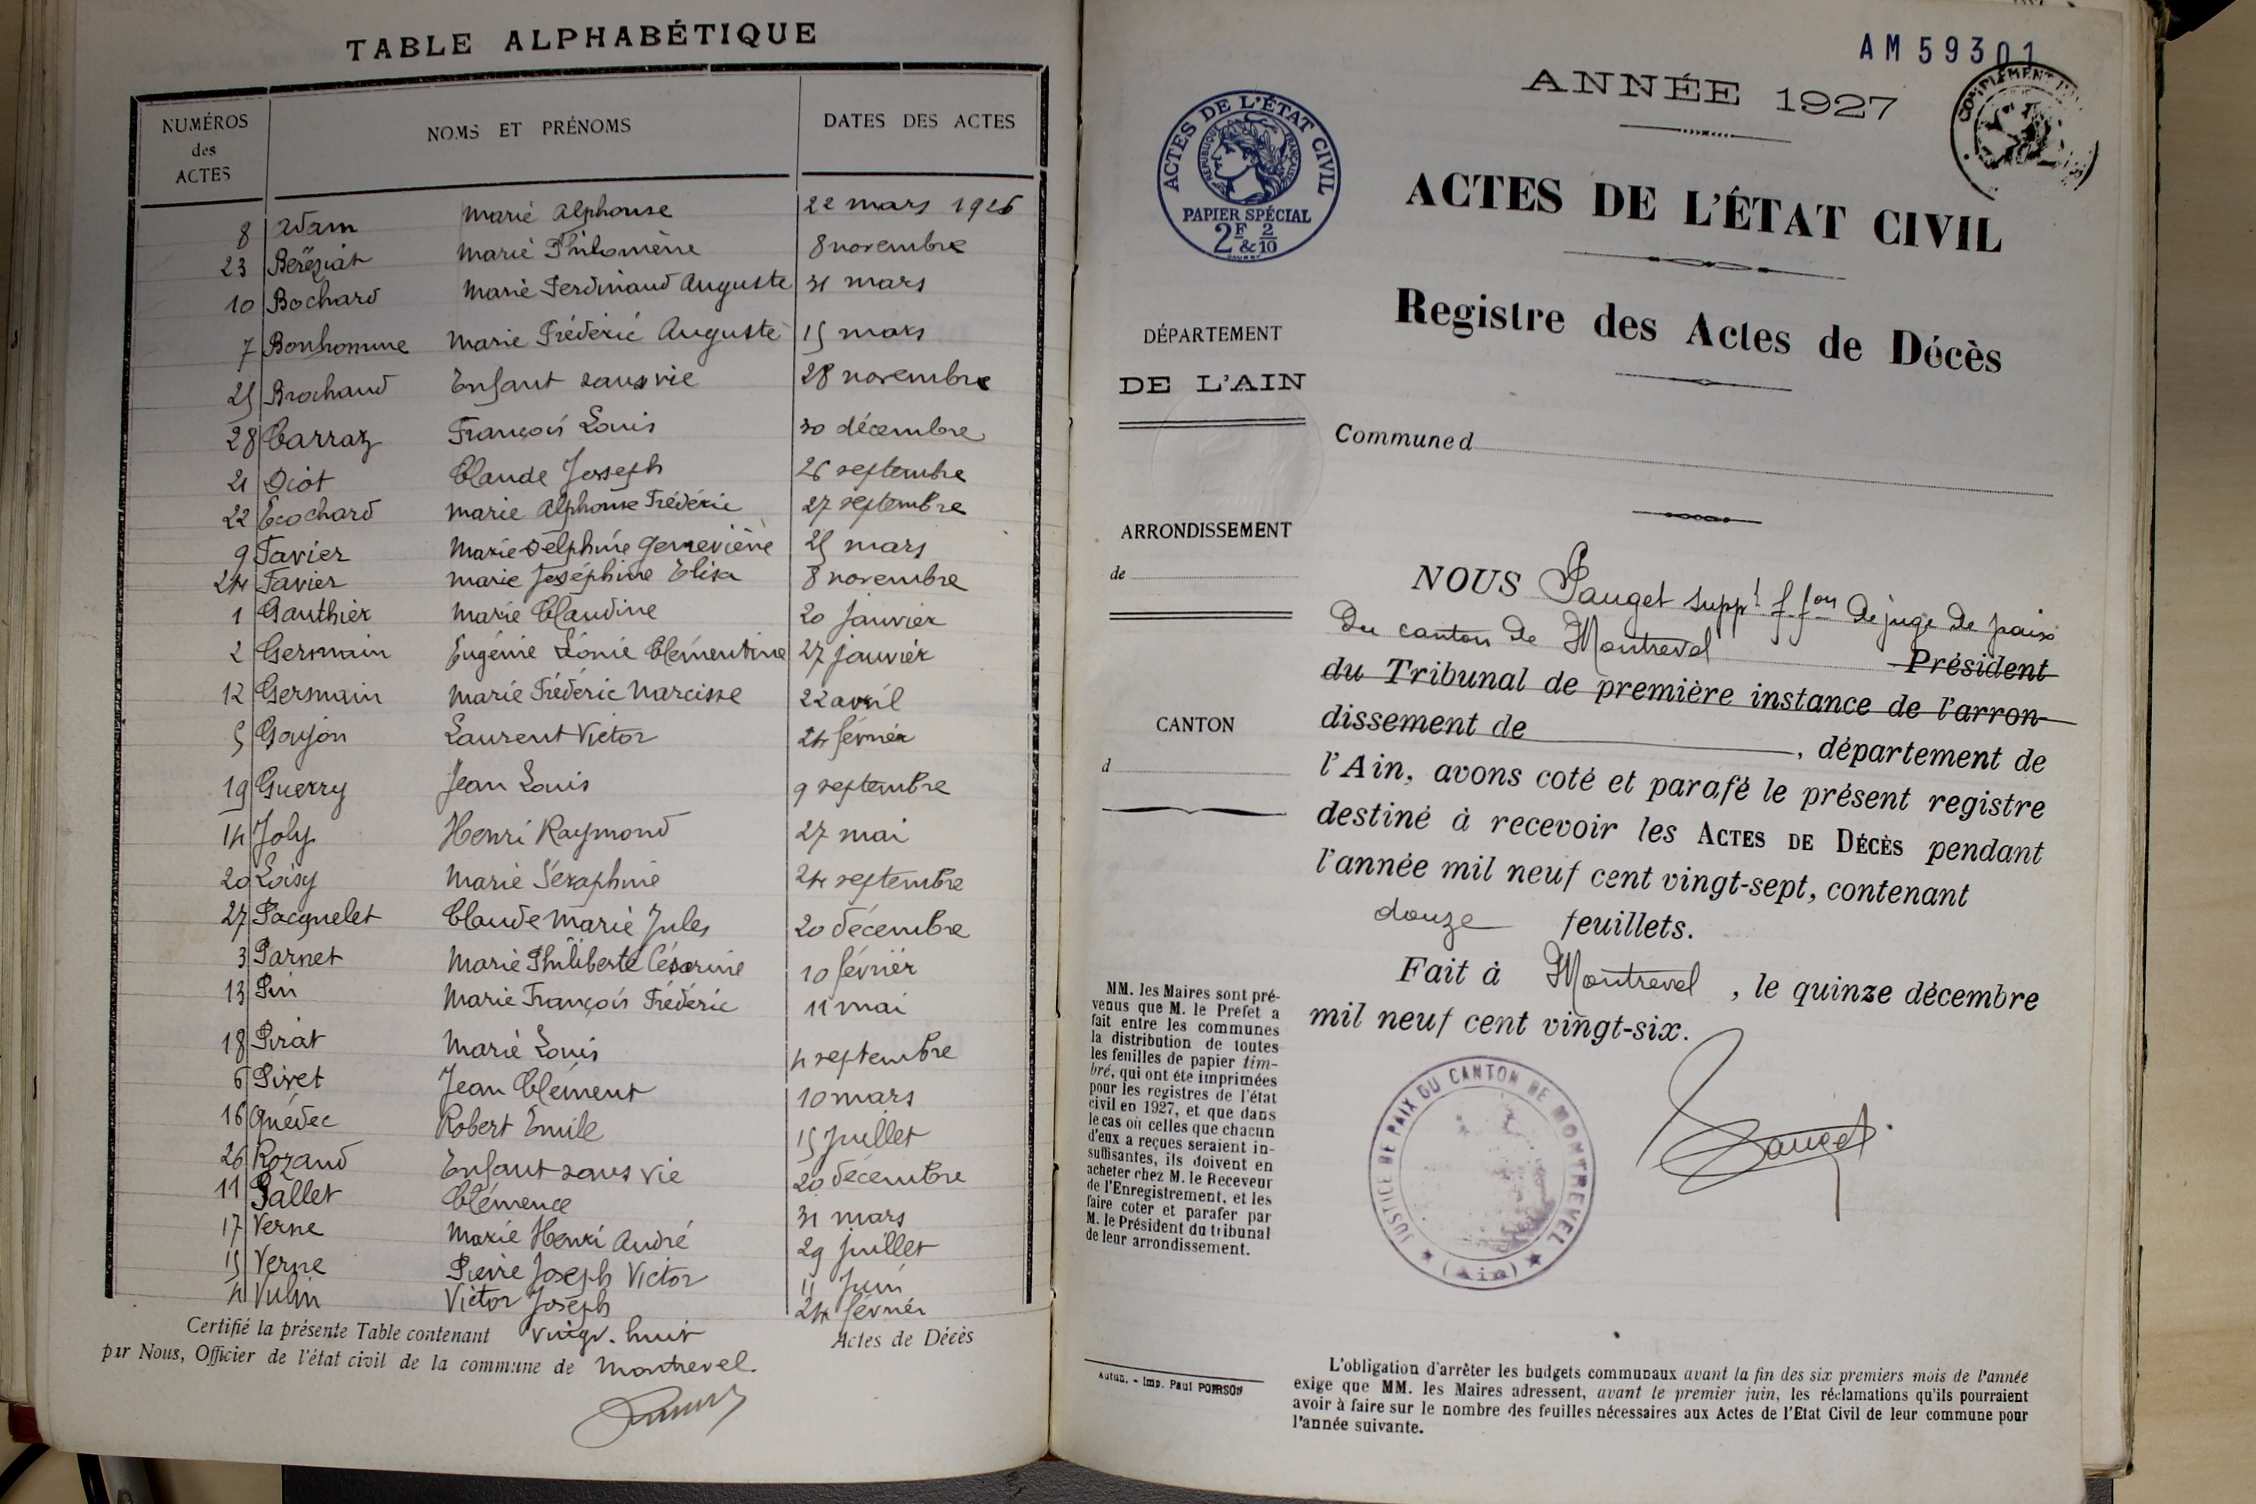 TABLE ALPHABÉTIQUE
NUMÉROS des ACTES NOMS ET PRÉNOMS DATES DES ACTES
8 Adam Marie Alphonse 22 mars 1926
23 Béréziat Marie Philomène 8 novembre
10 Bochard Marie Ferdinand Auguste 31 mars
7 Bonhomme Marie Frédéric Auguste 15 mars
25 Brochand Enfant sans vie 28 novembre
28 Carraz François Louis 30 décembre
21 Diot Claude Joseph 26 septembre
22 Ecochard Marie Alphonse Frédéric 27 septembre
9 Favier Marie Delphine Geneviève 25 mars
24 Favier Marie Joséphine Elisa 8 novembre
1 Gauthier Marie Claudine 20 janvier
2 Germain Eugénie Léonie Clémentine 27 janvier
12 Germain Marie Frédéric Narcisse 22 avril
5 Goujon Laurent Victor 24 février
19 Guerry Jean Louis 9 septembre
14 Joly Henri Raymond 27 mai
20 Loisy Marie Séraphine 24 septembre
27 Pacquelet Claude Marie Jules 20 décembre
3 Parnet Marie Philiberte Césarine 10 février
13 Pin Marie François Frédéric 11 mai
18 Pirat Marie Louis 4 septembre
6 Piret Jean Clément 10 mars
16 Quédec Robert Emile 15 Juillet
26 Rozand Enfant sans vie 20 décembre
11 Sallet Clémence 31 mars
17 Verne Marie Henri André 29 juillet
15 Verne Pierre Joseph Victor 11 Juin
4 Vulin Victor Joseph 24 février
Certifié la présente Table contenant vingt-huit Actes de Décès
par Nous, Officier de l'état civil de la commune de Montrevel.
AM 59301
ANNÉE 1927
COMPLÉMENT
ACTES DE L'ÉTAT CIVIL
RÉPUBLIQUE FRANÇAISE
PAPIER SPÉCIAL
2F & 2/10
ACTES DE L'ÉTAT CIVIL
Registre des Actes de Décès
DÉPARTEMENT
DE L'AIN
Commune d
ARRONDISSEMENT
de
CANTON
d
NOUS Pauget suppt f.fon de juge de paix
du canton de Montrevel Président
du Tribunal de première instance de l'arron-
dissement de , département de
l'Ain, avons coté et parafé le présent registre
destiné à recevoir les ACTES DE DÉCÈS pendant
l'année mil neuf cent vingt-sept, contenant
douze feuillets.
Fait à Montrevel, le quinze décembre
mil neuf cent vingt-six.
Pauget
JUSTICE DE PAIX DU CANTON DE MONTREVEL
(Ain)
MM. les Maires sont pré-
venus que M. le Préfet a
fait entre les communes
la distribution de toutes
les feuilles de papier tim-
bré, qui ont été imprimées
pour les registres de l'état
civil en 1927, et que dans
le cas où celles que chacun
d'eux a reçues seraient in-
suffisantes, ils doivent en
acheter chez M. le Receveur
de l'Enregistrement, et les
faire coter et parafer par
M. le Président du tribunal
de leur arrondissement.
Autun. - Imp. Paul POIRSON
L'obligation d'arrêter les budgets communaux avant la fin des six premiers mois de l'année
exige que MM. les Maires adressent, avant le premier juin, les réclamations qu'ils pourraient
avoir à faire sur le nombre des feuilles nécessaires aux Actes de l'Etat Civil de leur commune pour
l'année suivante.